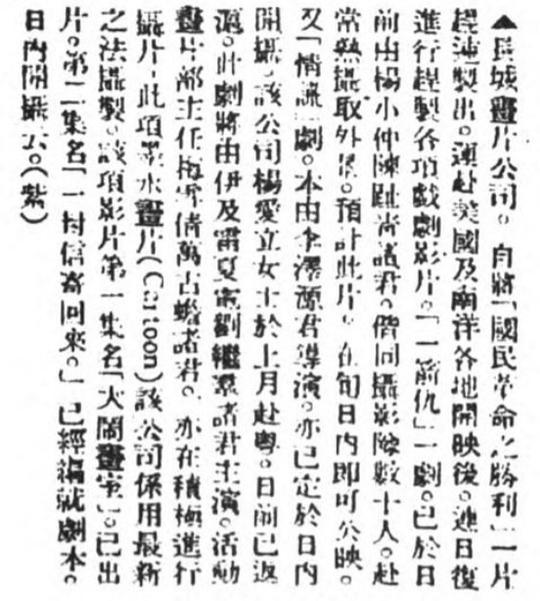 ▲長城畫片公司。自將「國民革命之勝利」一片
趕速製出。運赴英國及南洋各地開映後。連日復
進行趕製各項戲劇影片。「一箭仇」一劇。已於日
前由楊小仲陳趾青諸君。偕同攝影隊數十人。赴
常熟攝取外景。預計此片。在旬日内即可公映。
又「情 」一劇。本由李澤源君導演。亦已定於日内
開攝。該公司楊愛立女士於上月赴粤。日前已返
滬。此劇將由伊及雷夏電劉繼羣諸君主演。活動
畫片部主任梅雪儔萬古蟾諸君。亦在積極進行
攝片。此項墨水畫片(Cartoon)該公司係用最新
之法攝製。該項影片第一集名「大鬧畫室」。已出
片。第二集名「一封信寄回來。」已經編就劇本。
日内開攝云。(紫)